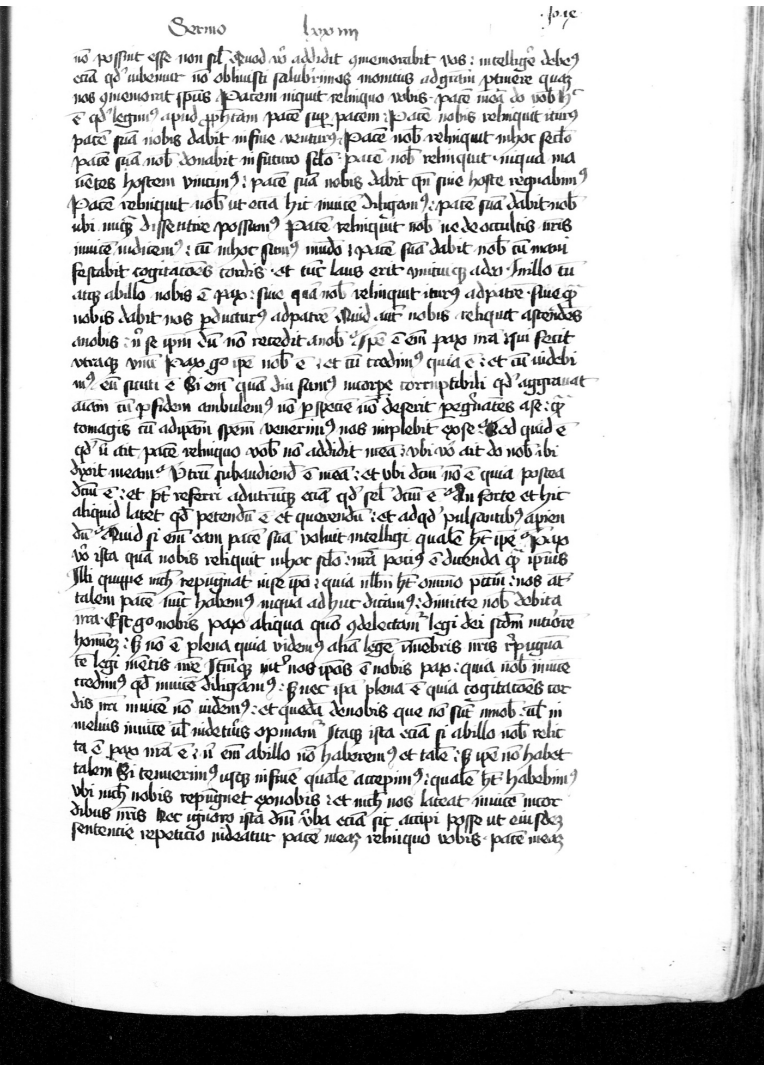 Sermo lxxiiii
nō possint esse non sil̄ Quod v̊ addidit ꝯmemorabit vos : intelligē debeꝰ
eciā qd̕ iubemur nō oblivisci saluberimos monitus ad grām ꝑtinere quaꝫ
nos ꝯmemorat sp̄us · Pacem inquit relinquo vobis · pacē meā do vob̄ hͦ
ē qd̕ legimꝰ apud ꝓphetam pacē suꝑ pacem : Pacē nobis relinquit iturꝰ
pacē suā nobis dabit in fine venturꝰ · Pacē nob̄ relinquit in hoc sc̄lo
pacē suā nob̄ donabit in futuro sc̄lo · pacē nob̄ relinquit · in qua ma
nētes hostem vincimꝰ : pacē suā nobis dabit qn̄ sine hoste regnabimꝰ
Pacē relinquit nob̄ ut ecia hic inuicē diligamꝰ : pacē suā dabit nob̄
ubi nūqꝫ dissentire possumꝰ Pacē relinquit nob̄ ne de occultis nr̄is
inuicē iudicemꝰ : cū in hoc sumꝰ mūdo : pacē suā dabit nob̄ cū mani
festabit cogitacōēs cordis · et tūc laus erit vnicuiqꝫ a deo · In illo tn̄
atqꝫ ab illo nobis ē pax : siue quā nob̄ relinquit iturꝰ ad patrē · siue quā
nobis dabit nos ꝑducturꝰ ad patrē Quid aūt nobis reliquit ascendēs
a nobis : n̄ se ip̄m dū nō recedit a nob̄ · Ip̄e ē em̄ pax nr̄a · qui fecit
vtraqꝫ vnū Pax g̊ ip̄e nob̄ ē : et cū credimꝰ quia ē : et cū uidebi
mꝰ eū sicuti ē Si em̄ quā diu sumꝰ in corꝑe corruptibili qd̕ aggrauat
aīam cū ꝑ fidem ambulemꝰ nō ꝑ speciē nō deserit pegrinātes a se : quā
tomagis cū ad ipam spēm venerimꝰ nos implebit ex se Sed quid ē
qd̕ ū ait pacē relinquo vob̄ nō addidit meā : vbi vō ait do nob̄ ibi
dixit meam · Vtrū subaudiend̄ ē meā : et vbi dcm̄ nō ē quia postea
dcm̄ ē : et pt̄ referri ad utrūqꝫ eciā qd̕ sel̄ dcm̄ ē · An forte et hic
aliquid latet qd̕ petendū ē et querendū : et ad qd̕ pulsantibꝰ aꝑien
dū · Quid si em̄ eam pacē suā voluit intelligi qualē hēt ip̄e · Pax
vō ista quā nobis reliquit in hoc sc̄lo : nr̄a pociꝰ ē dicenda qͣ ip̄ius
Illi quippe nich̄ repugnat in se ipō : quia nllm̄ hēt omnino pctm̄ : nos aūt
talem pacē nūc habemꝰ in qua ad huc dicamꝰ : dimitte nob̄ debita
nr̄a · Est g̊ nobis pax aliqua qm̄ ꝯdelectamᷣ legi dei scd̄m interiorē
hominē : sꝫ nō ē plena quia videmꝰ aliā legē ī membris nr̄is repugnā
tē legi mētis nr̄e Itēqꝫ intᷣ nos ip̄os ē nobis pax : quia nob̄ inuicē
credimꝰ qd̕ inuicē diligamꝰ : sꝫ nec ip̄a plena ē quia cogitacōēs cor
dis nr̄i inuicē nō uidemꝰ : et quedā de nobis que nō sūt in nob̄ : ul̄ in
melius inuicē ul̄ in deteriꝰ opinamᷣ Itaqꝫ ista eciā si ab illo nob̄ relic
ta ē pax nr̄a ē : n̄ em̄ ab illo nō haberemꝰ et talē : sꝫ ip̄e nō habet
talem Si tenuerimꝰ usqꝫ in finē qualē accepimꝰ : qualē hēt habebimꝰ
vbi nich̄ nobis repugnet ex nobis : et nich̄ nos lateat inuicē in cor
dibus nr̄is Nec ignoro ista dn̄i v̓ba eciā sic accipi posse ut eiusdeꝫ
sentencie repeticio uideatur pacē meaꝫ relinquo vobis · pacē meaꝫ